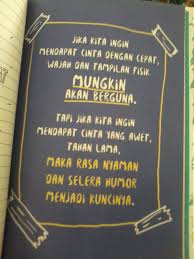 JIKA KITA INGIN
MENDAPAT CINTA DENGAN CEPAT,
WAJAH DAN TAMPILAN FISIK
MUNGKIN
AKAN BERGUNA.
TAPI JIKA KITA INGIN
MENDAPAT CINTA YANG AWET,
TAHAN LAMA,
MAKA RASA NYAMAN
DAN SELERA HUMOR
MENJADI KUNCINYA.